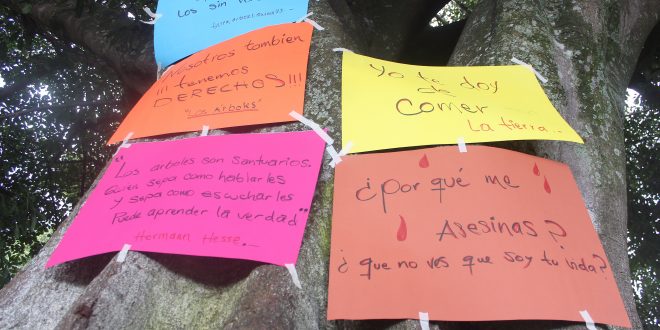 Los sin v
Nosotros tombien
¡¡¡tenemos
DERECHOS!!!
"Los Arboles"
Yo te doy
de
Comer
La tierra...
"Los arboles son santuarios.
Quien sepa como hablarles
y sepa como escucharles
Puede aprender la verdad"
Hermann Hesse._
¿Por qué me
Asesinas?
¿que no ves que soy tu vida?